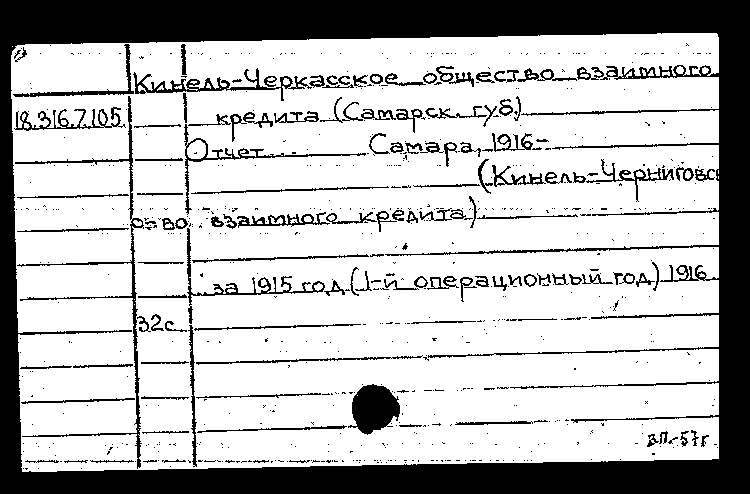 Кинель-Черкасское общество взаимного
18.316.7.105 кредита (Самарск. губ.)
Отчет ... Самара, 1916-
(Кинель-Черниговск
о-во взаимного кредита)
за 1915 год (1-й операционный год) 1916
32с.
ВП.-57г